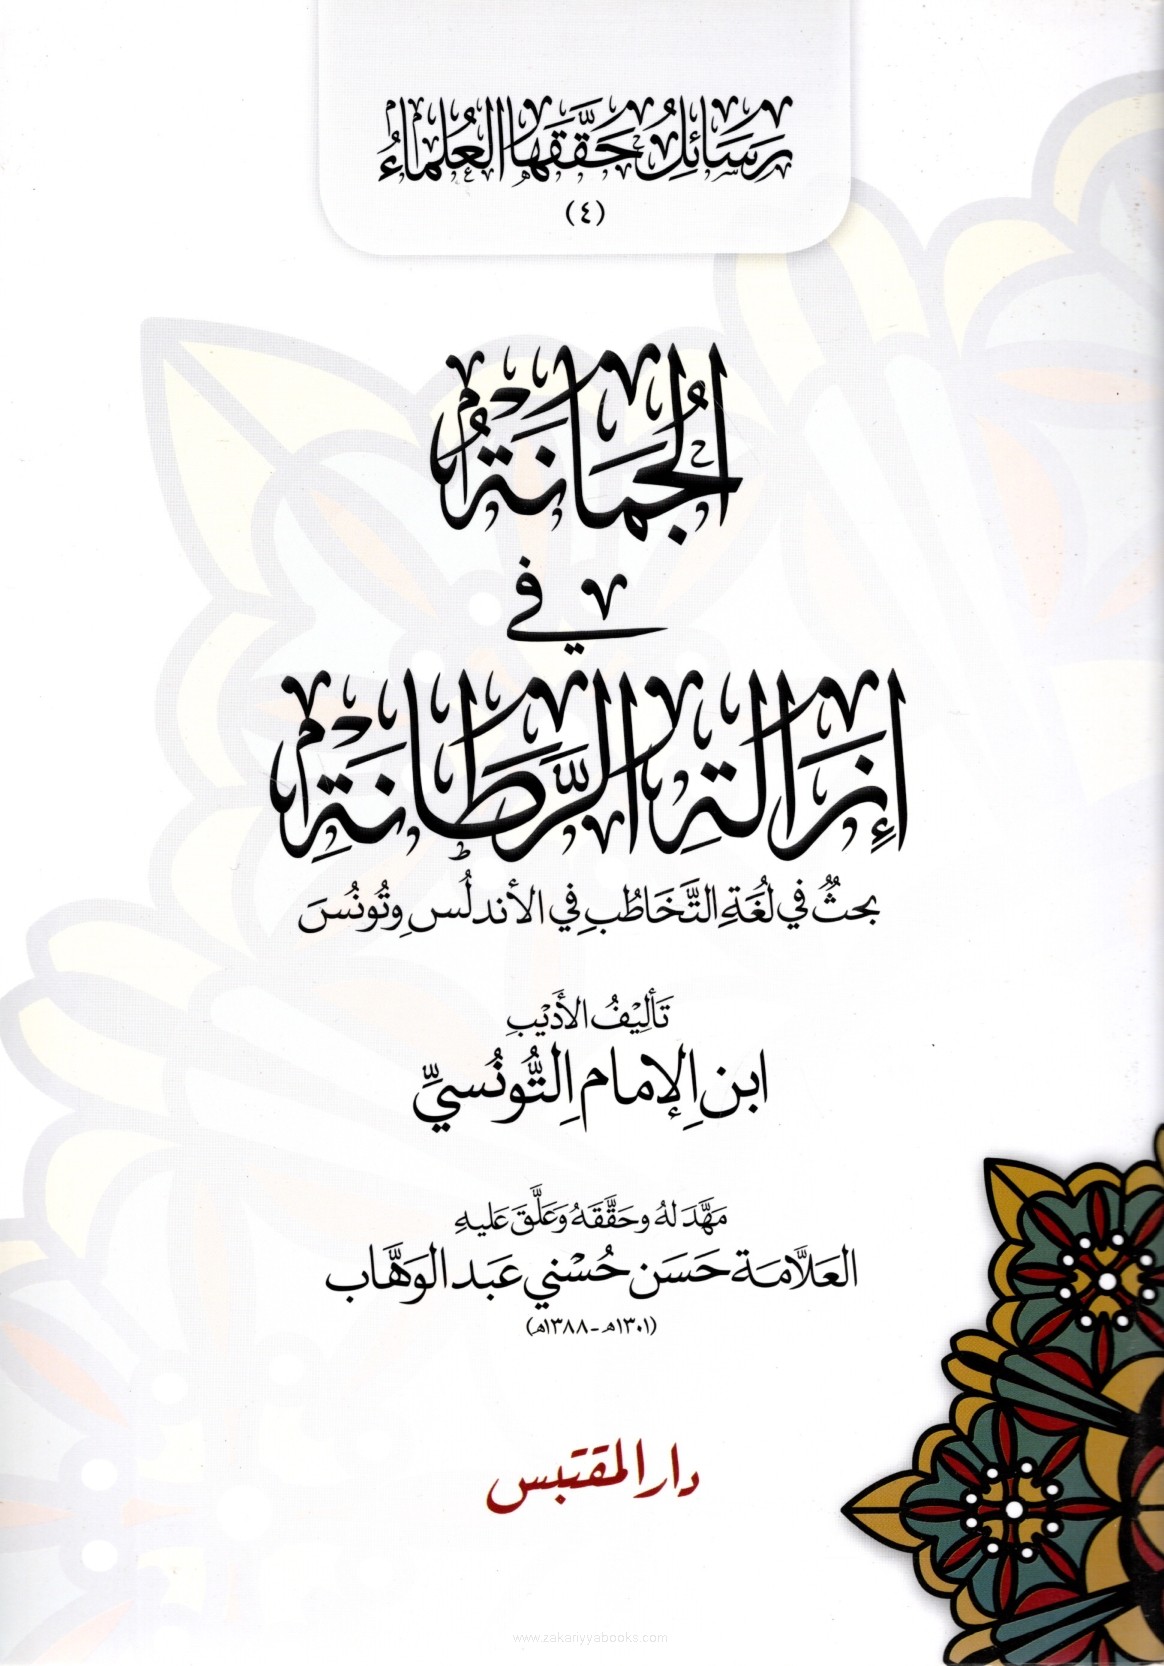 رَسَائِلُ حَقَّقَهَا العُلَمَاءُ
(٤)
الجُمَانَةُ
في
إِزَالَةِ الرَّطَانَةِ
بحثٌ في لُغَةِ التَّخَاطُبِ في الأندلُسِ وتُونُسَ
تَأْلِيْفُ الأَدِيْبِ
ابنِ الإمامِ التُّونُسيِّ
مَهَّدَ لهُ وحَقَّقَهُ وَعَلَّقَ عَليهِ
العَلاَّمَة حَسَن حُسْني عَبد الوَهَّاب
(١٣٠١هـ - ١٣٨٨هـ)
دار المقتبس
www.zakariyyabooks.com